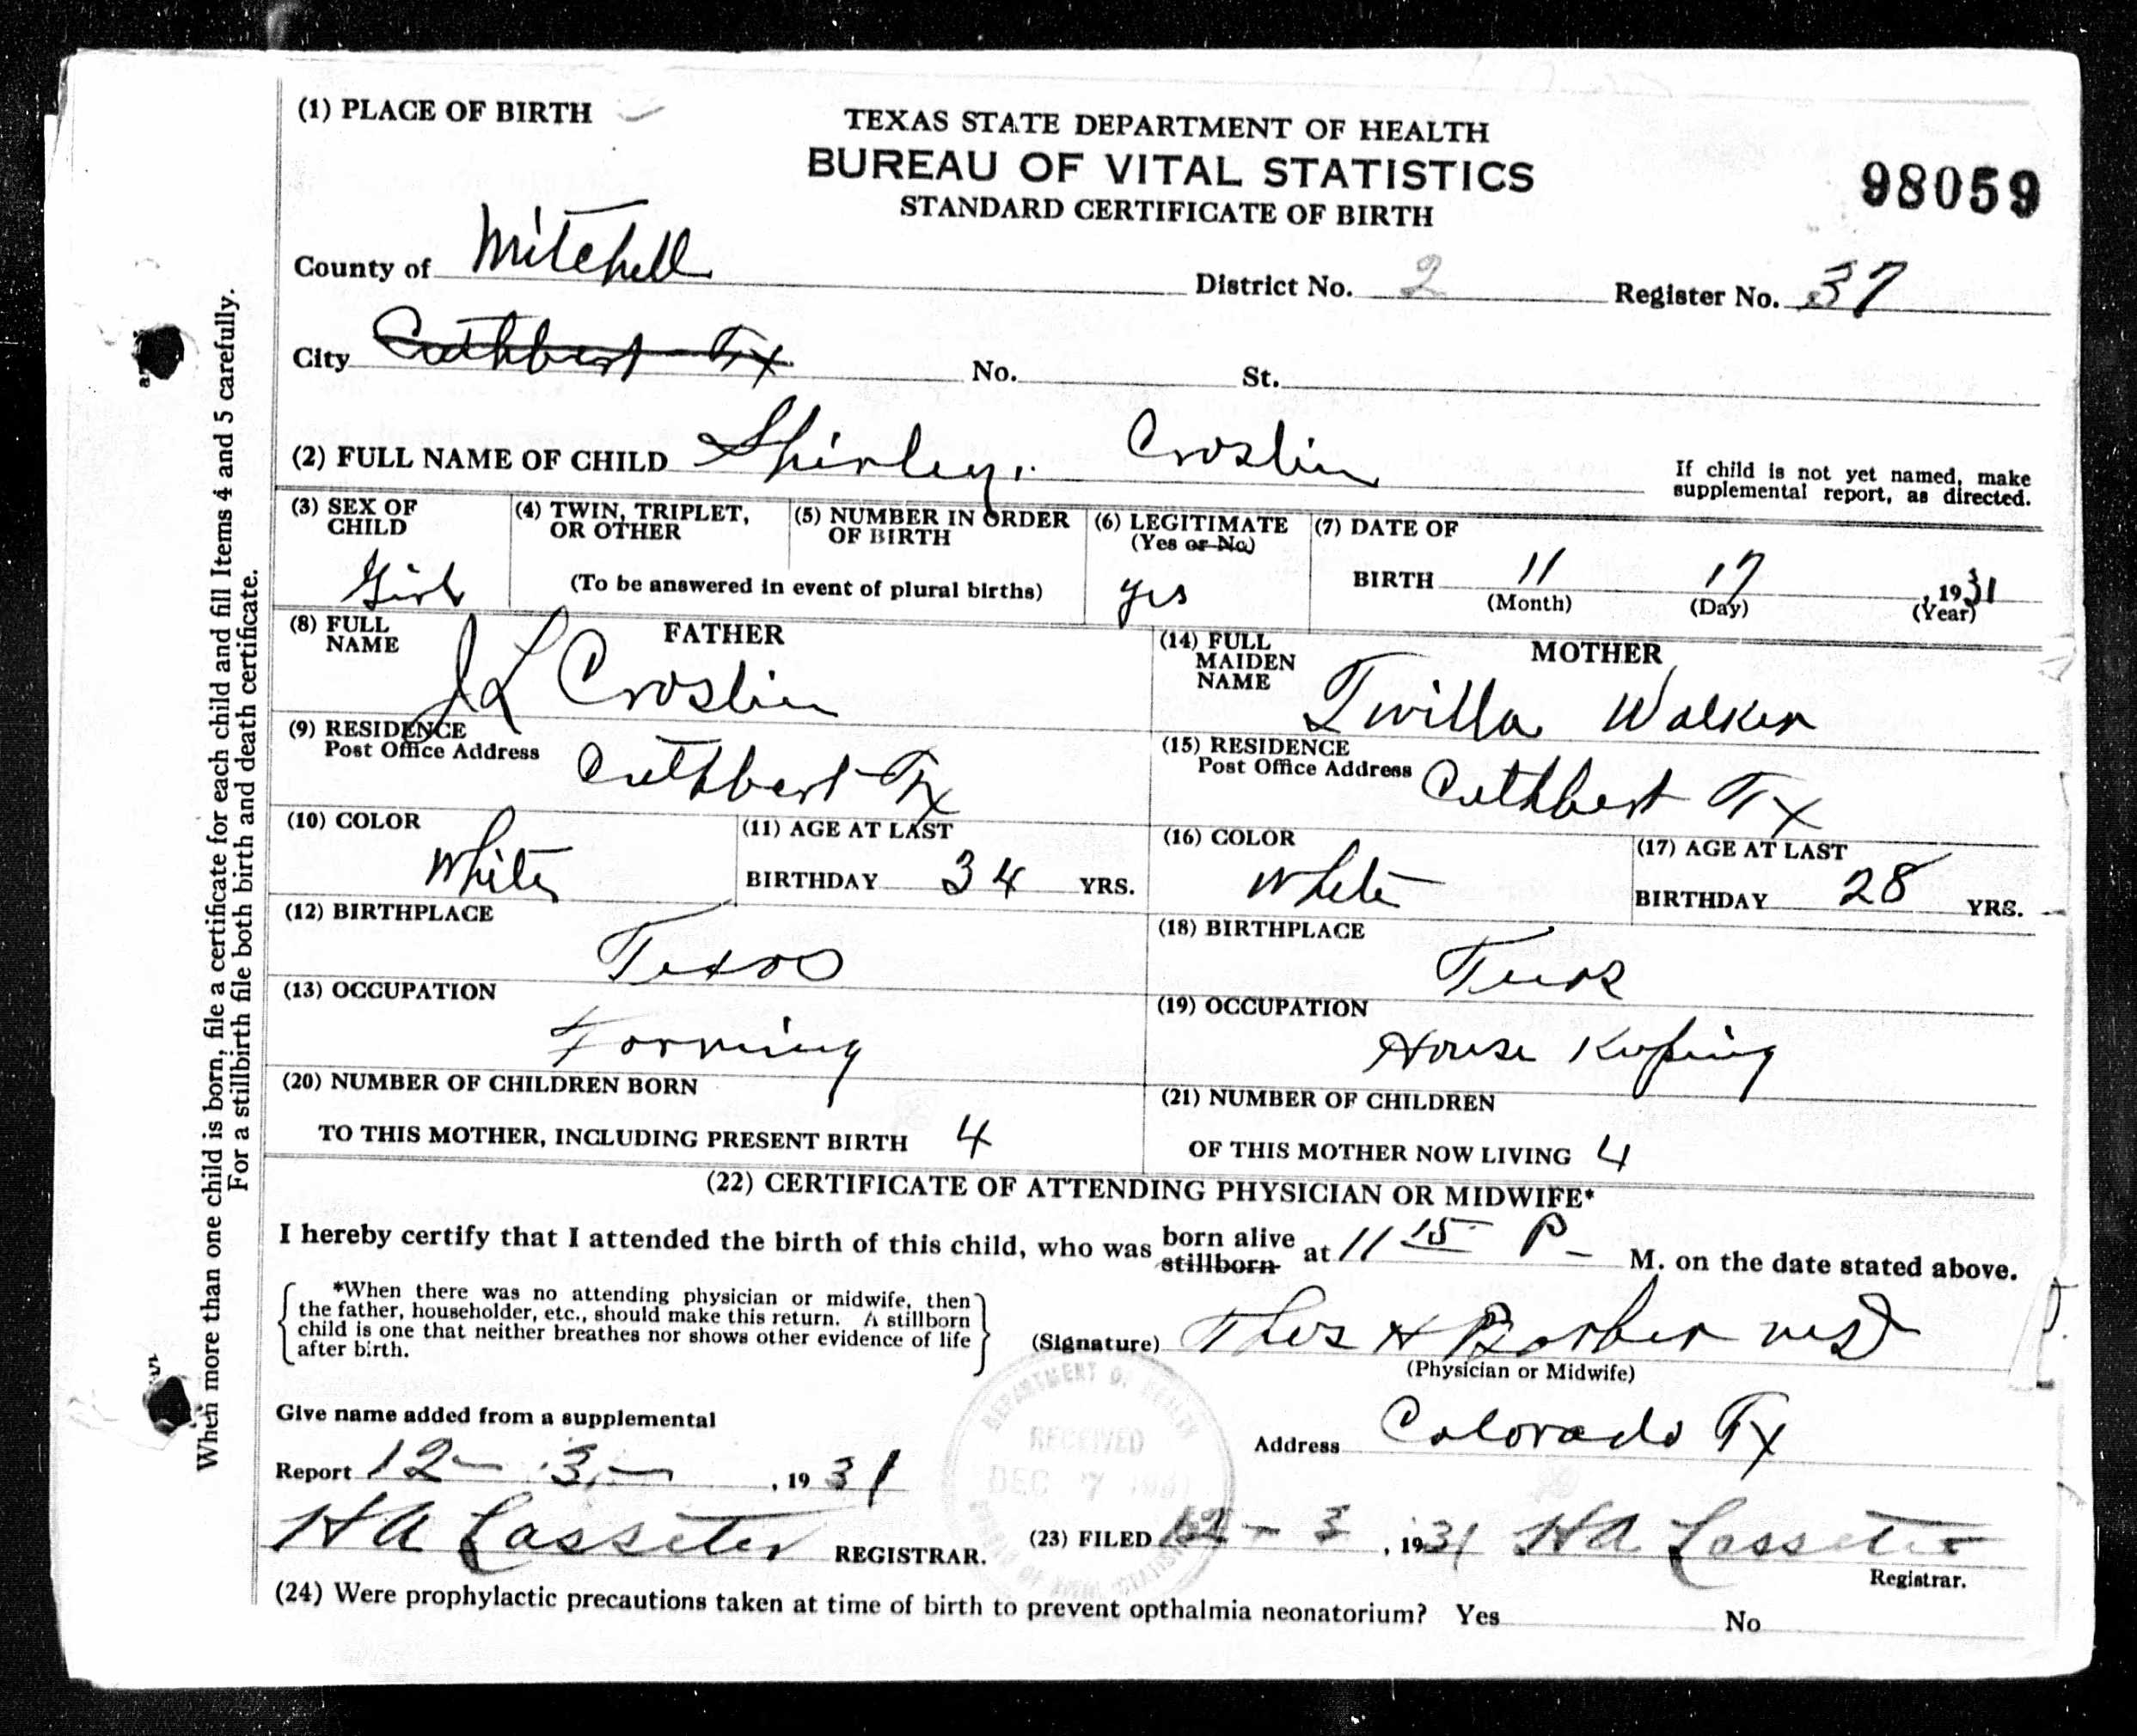 (1) PLACE OF BIRTH
TEXAS STATE DEPARTMENT OF HEALTH
BUREAU OF VITAL STATISTICS
STANDARD CERTIFICATE OF BIRTH
98059
County of Mitchell District No. 2 Register No. 37
City Cuthbert Tx No. St.
(2) FULL NAME OF CHILD Shirley. Croslin
If child is not yet named, make
supplemental report, as directed.
(3) SEX OF CHILD Girl
(4) TWIN, TRIPLET, OR OTHER
(5) NUMBER IN ORDER OF BIRTH
(To be answered in event of plural births)
(6) LEGITIMATE (Yes or No) yes
(7) DATE OF BIRTH 11 17, 1931
(Month) (Day) (Year)
FATHER
(8) FULL NAME J L Croslin
(9) RESIDENCE Post Office Address Cuthbert Tx
(10) COLOR White
(11) AGE AT LAST BIRTHDAY 34 YRS.
(12) BIRTHPLACE Texas
(13) OCCUPATION Farming
MOTHER
(14) FULL MAIDEN NAME Twilla Walker
(15) RESIDENCE Post Office Address Cuthbert Tx
(16) COLOR White
(17) AGE AT LAST BIRTHDAY 28 YRS.
(18) BIRTHPLACE Texas
(19) OCCUPATION House Keeping
(20) NUMBER OF CHILDREN BORN
TO THIS MOTHER, INCLUDING PRESENT BIRTH 4
(21) NUMBER OF CHILDREN
OF THIS MOTHER NOW LIVING 4
(22) CERTIFICATE OF ATTENDING PHYSICIAN OR MIDWIFE*
I hereby certify that I attended the birth of this child, who was born alive stillborn at 11 15 P M. on the date stated above.
*When there was no attending physician or midwife, then
the father, householder, etc., should make this return. A stillborn
child is one that neither breathes nor shows other evidence of life
after birth.
(Signature) Thos H Barber MD
(Physician or Midwife)
Address Colorado Tx
Give name added from a supplemental
Report 12-3-, 1931
H A Lasseter REGISTRAR.
(23) FILED 12-3, 1931 H A Lasseter
Registrar.
DEPARTMENT OF HEALTH
RECEIVED
DEC 7 1931
(24) Were prophylactic precautions taken at time of birth to prevent opthalmia neonatorium? Yes No
When more than one child is born, file a certificate for each child and fill Items 4 and 5 carefully.
For a stillbirth file both birth and death certificate.